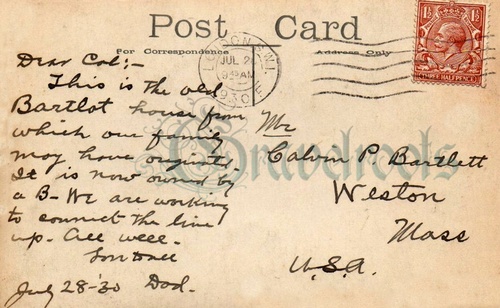 Post Card
For Correspondence
Address Only
LONDON S.W.1
JUL 2
9 AM
1930
1½ 1½
THREE HALFPENCE
Dear Cal:-
This is the old
Bartlot house from
which our family
may have originated.
It is now owned by
a B- We are working
to connect the line
up. All well.
Dad.
July 28-30
Mr
Calvin P. Bartlett
Weston
Mass
U.S.A.
Gravelroots